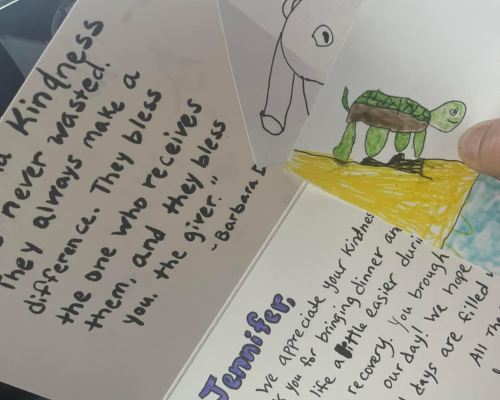 Kindness
never wasted.
They always make a
difference. They bless
the one who receives
them, and they bless
you. the giver."
-Barbara
Jennifer,
We appreciate your kindness
you for bringing dinner
life a little easier
recovery. You
our day! We hope
days are filled
All